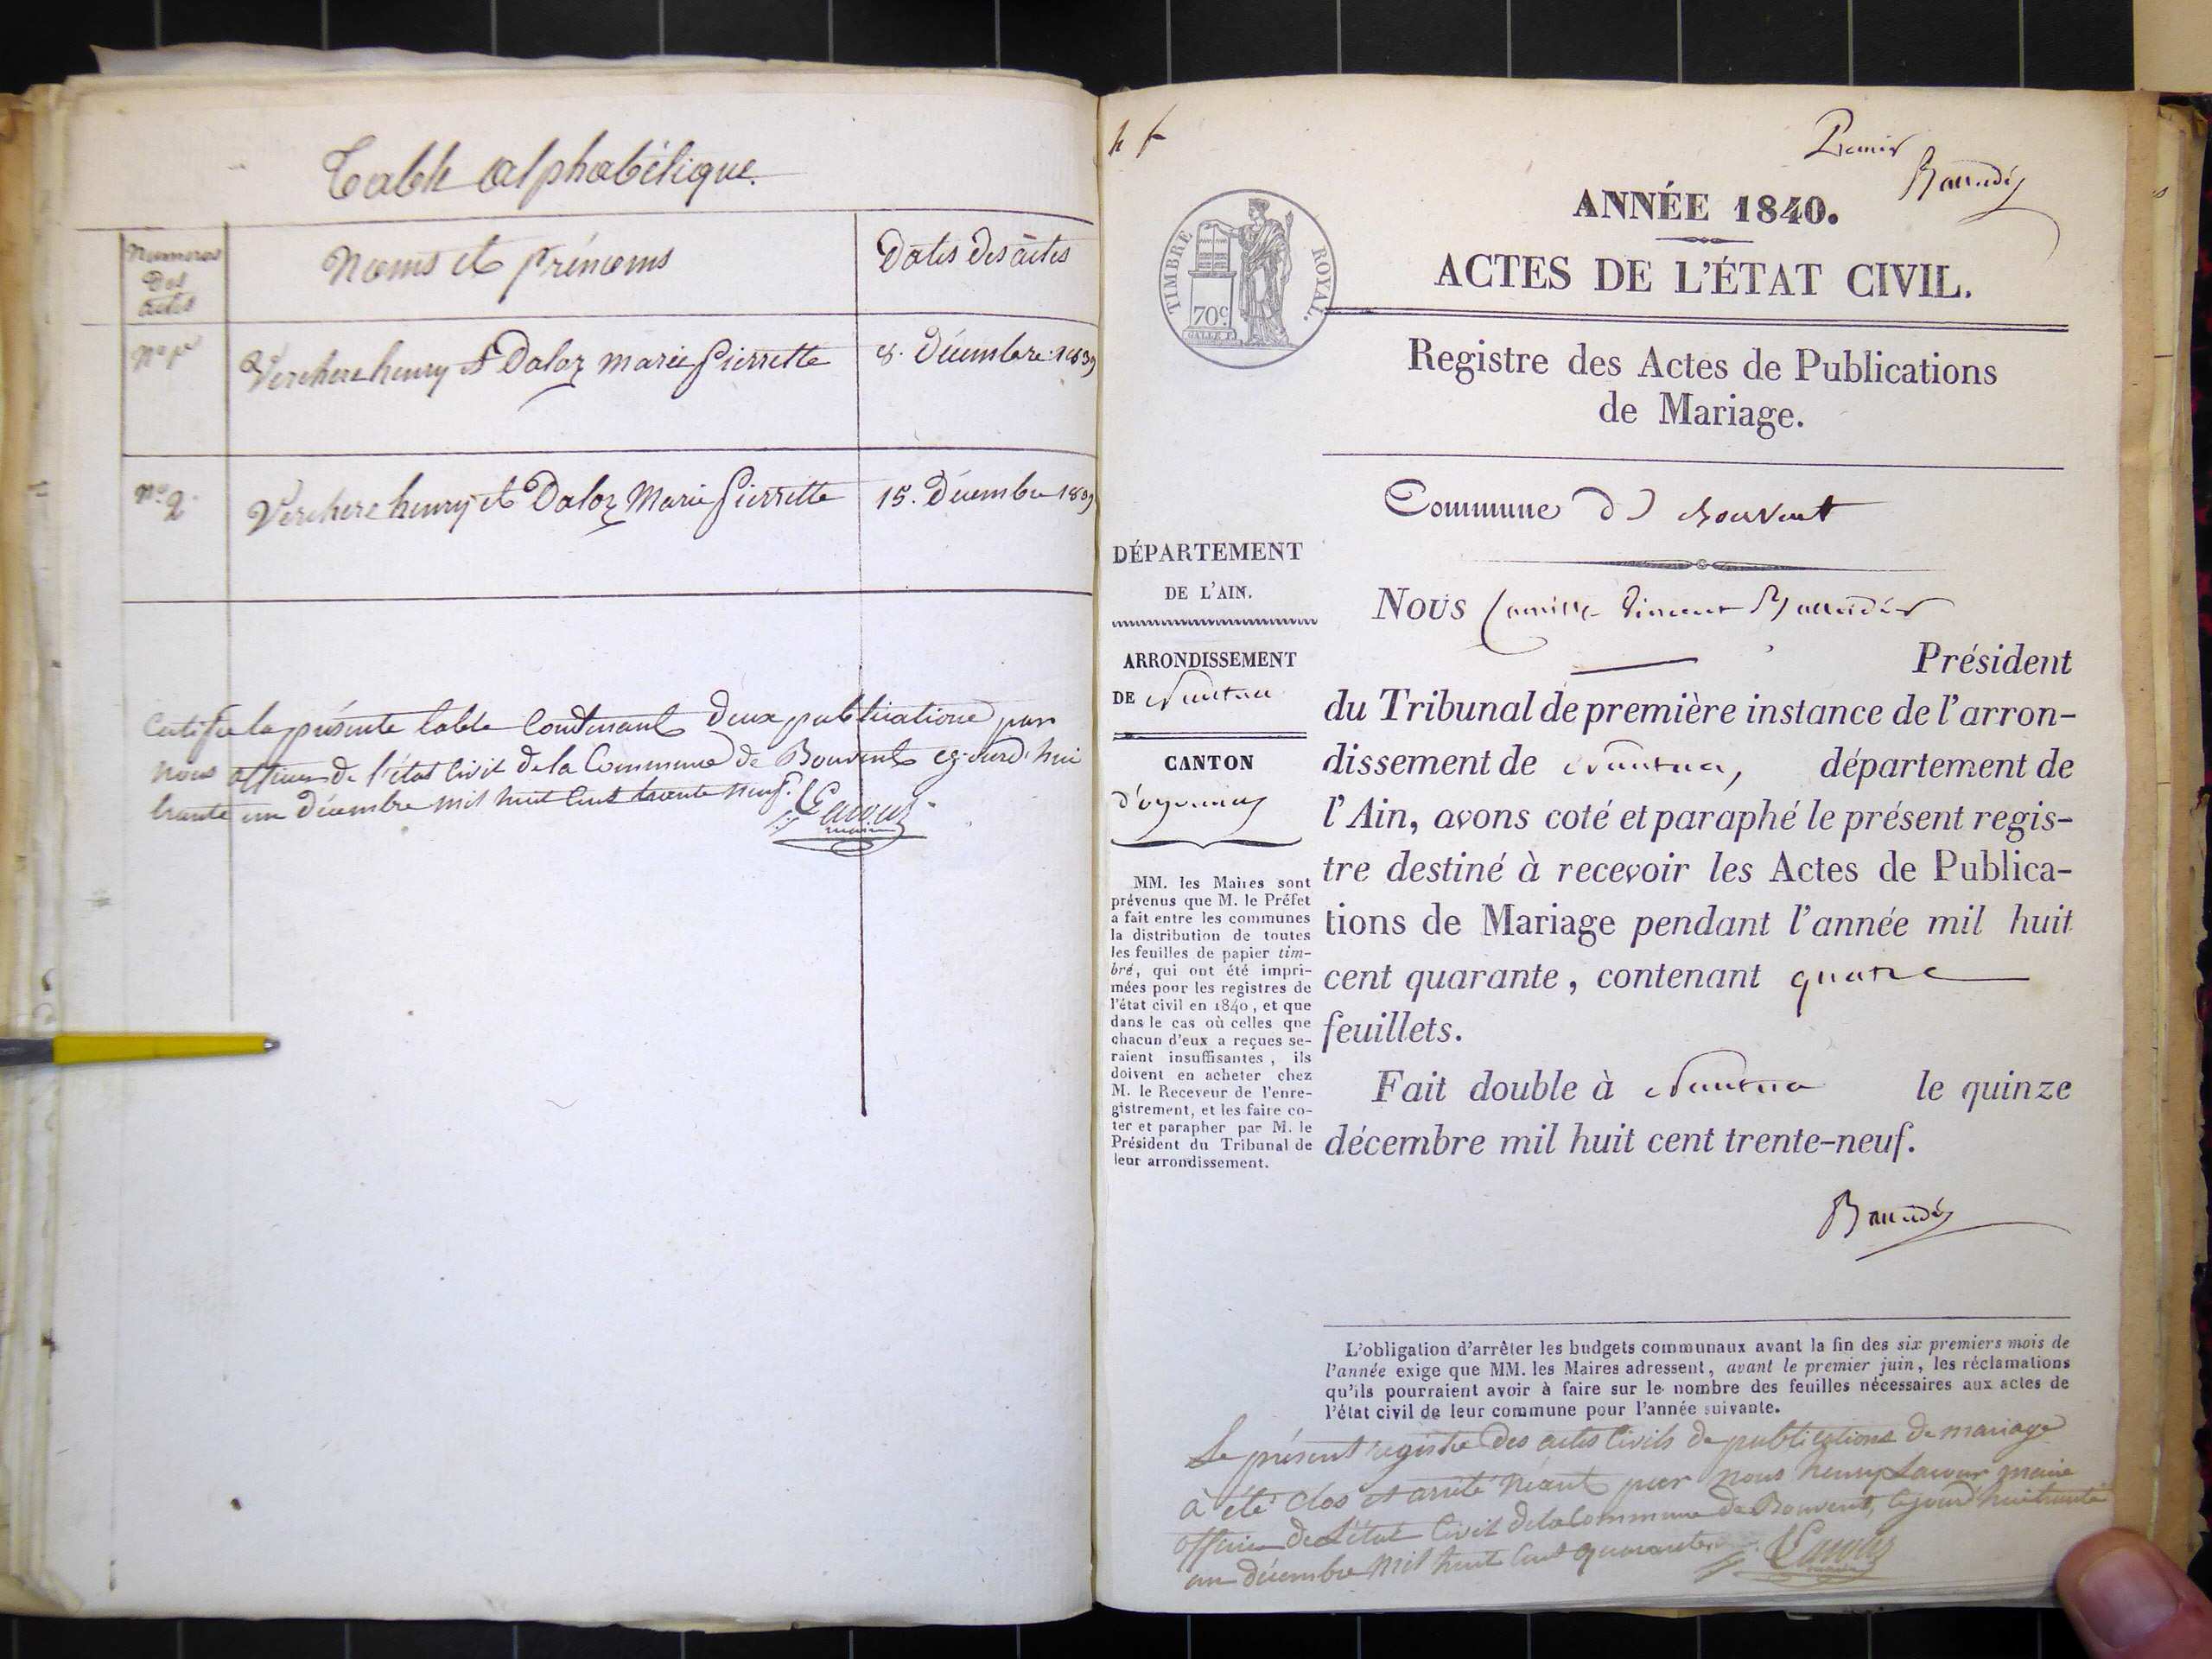 Table alphabétique.
Numeros
Des
actes
Noms et Prénoms
Dates des actes
Nº 1er
Verchere henry & Daloz marie Pierrette
8. Décembre 1839
nº 2.
Verchere henry et Daloz Marie Pierrette
15. Décembre 1839
Certifié la présente table Contenant Deux publications par
nous officier de l'état Civil de la Commune de Bouvent ce jourd'hui
trente un décembre mil huit Cent trente neuf.
Lacour
maire
Premier
ANNÉE 1840.
ACTES DE L'ÉTAT CIVIL.
TIMBRE ROYAL.
70c
Registre des Actes de Publications
de Mariage.
Commune de Bouvent
DÉPARTEMENT
DE L'AIN.
ARRONDISSEMENT
DE Nantua
CANTON
d'oyonnax
MM. les Maires sont
prévenus que M. le Préfet
a fait entre les communes
la distribution de toutes
les feuilles de papier tim-
bré, qui ont été impri-
mées pour les registres de
l'état civil en 1840, et que
dans le cas où celles que
chacun d'eux a reçues se-
raient insuffisantes, ils
doivent en acheter chez
M. le Receveur de l'enre-
gistrement, et les faire co-
ter et parapher par M. le
Président du Tribunal de
leur arrondissement.
Nous Camille Vincent
Président
du Tribunal de première instance de l'arron-
dissement de Nantua, département de
l'Ain, avons coté et paraphé le présent regis-
tre destiné à recevoir les Actes de Publica-
tions de Mariage pendant l'année mil huit
cent quarante, contenant quatre
feuillets.
Fait double à Nantua le quinze
décembre mil huit cent trente-neuf.
L'obligation d'arrêter les budgets communaux avant la fin des six premiers mois de
l'année exige que MM. les Maires adressent, avant le premier juin, les réclamations
qu'ils pourraient avoir à faire sur le nombre des feuilles nécessaires aux actes de
l'état civil de leur commune pour l'année suivante.
Le présent registre des actes Civils de publications de mariage
à été clos et arrêté Néant par nous henry Lacour maire
officier de l'état Civil de la Commune de Bouvent, ce jourd'hui trente
un décembre Mil huit Cent quarante.
Lacour
maire